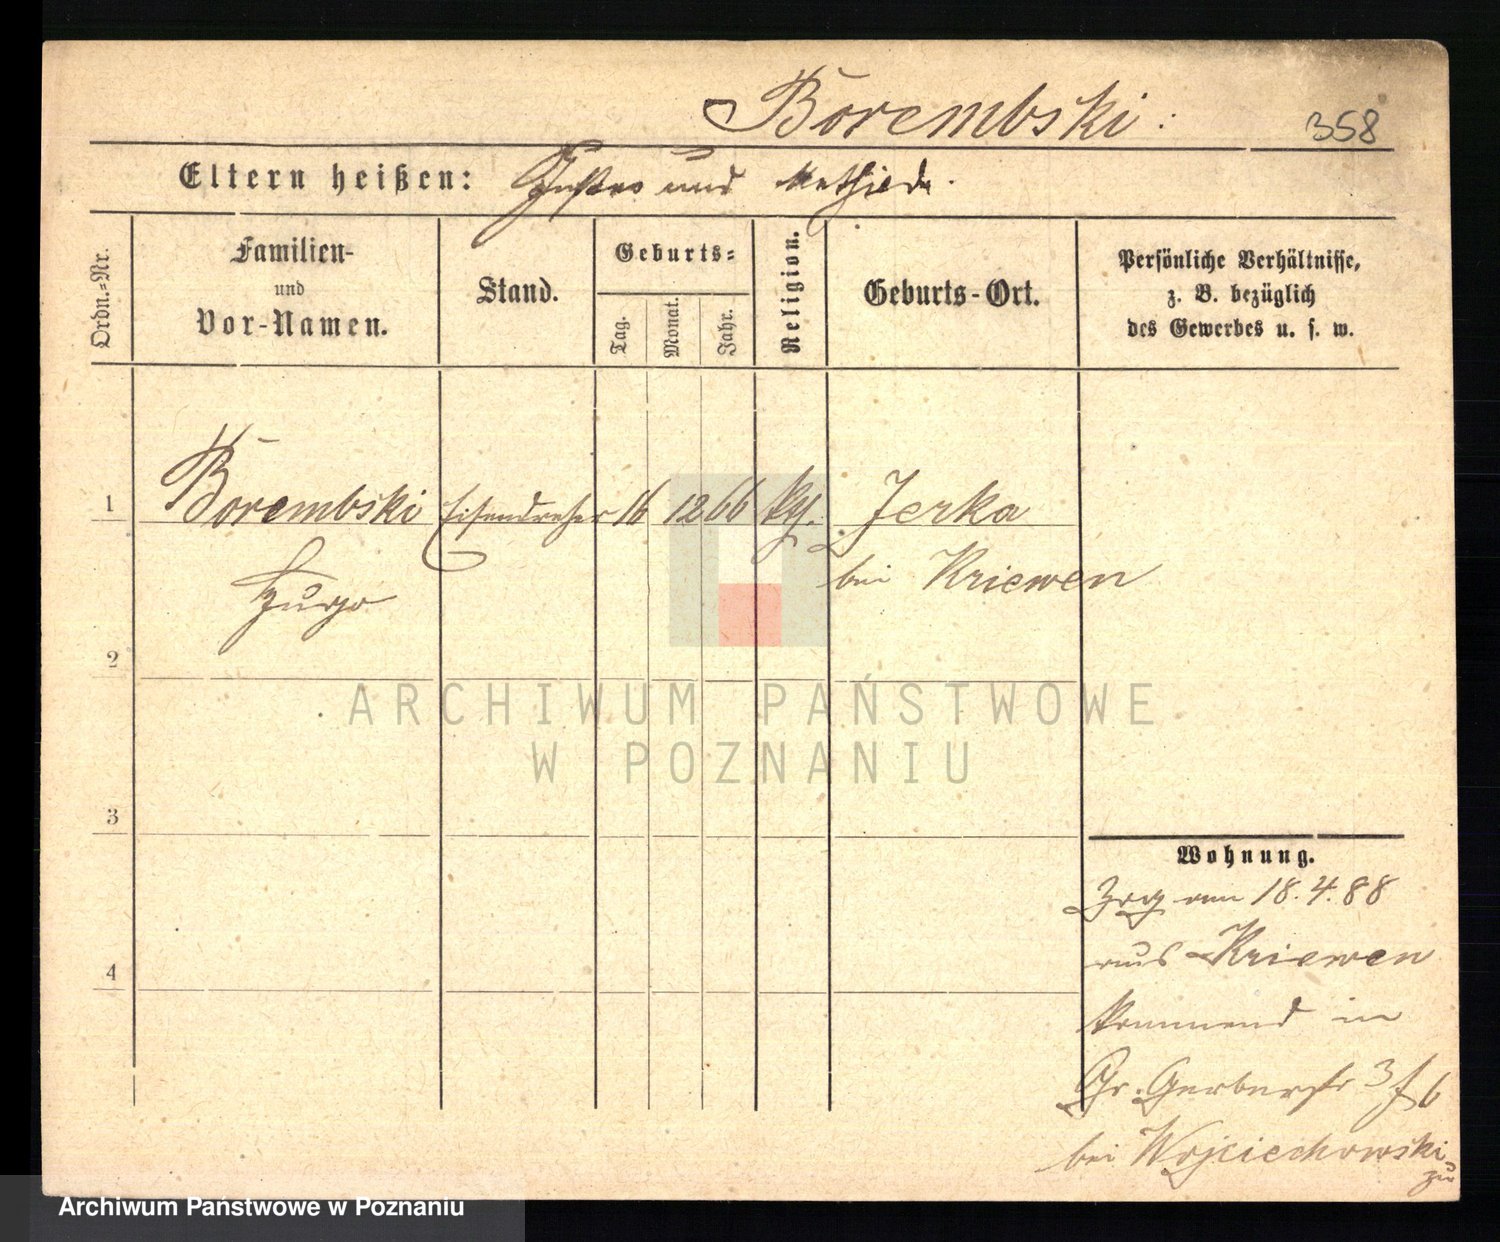 Borembski:
358
Eltern heißen: Gustav und Mathilde.
Ordn.-Nr.
Familien-
und
Vor-Namen.
Stand.
Geburts-
Tag.
Monat.
Jahr.
Religion.
Geburts-Ort.
Persönliche Verhältnisse,
z. B. bezüglich
des Gewerbes u. s. w.
1 Borembski Eisendreher 16 12 66 Jerka
Hugo bei Kriewen
2
ARCHIWUM PAŃSTWOWE
W POZNANIU
3
4
Wohnung.
Zzg am 18.4.88
aus Kriewen
kommend in
Gr. Gerberstr 36
bei Wojciechowski
zu
Archiwum Państwowe w Poznaniu